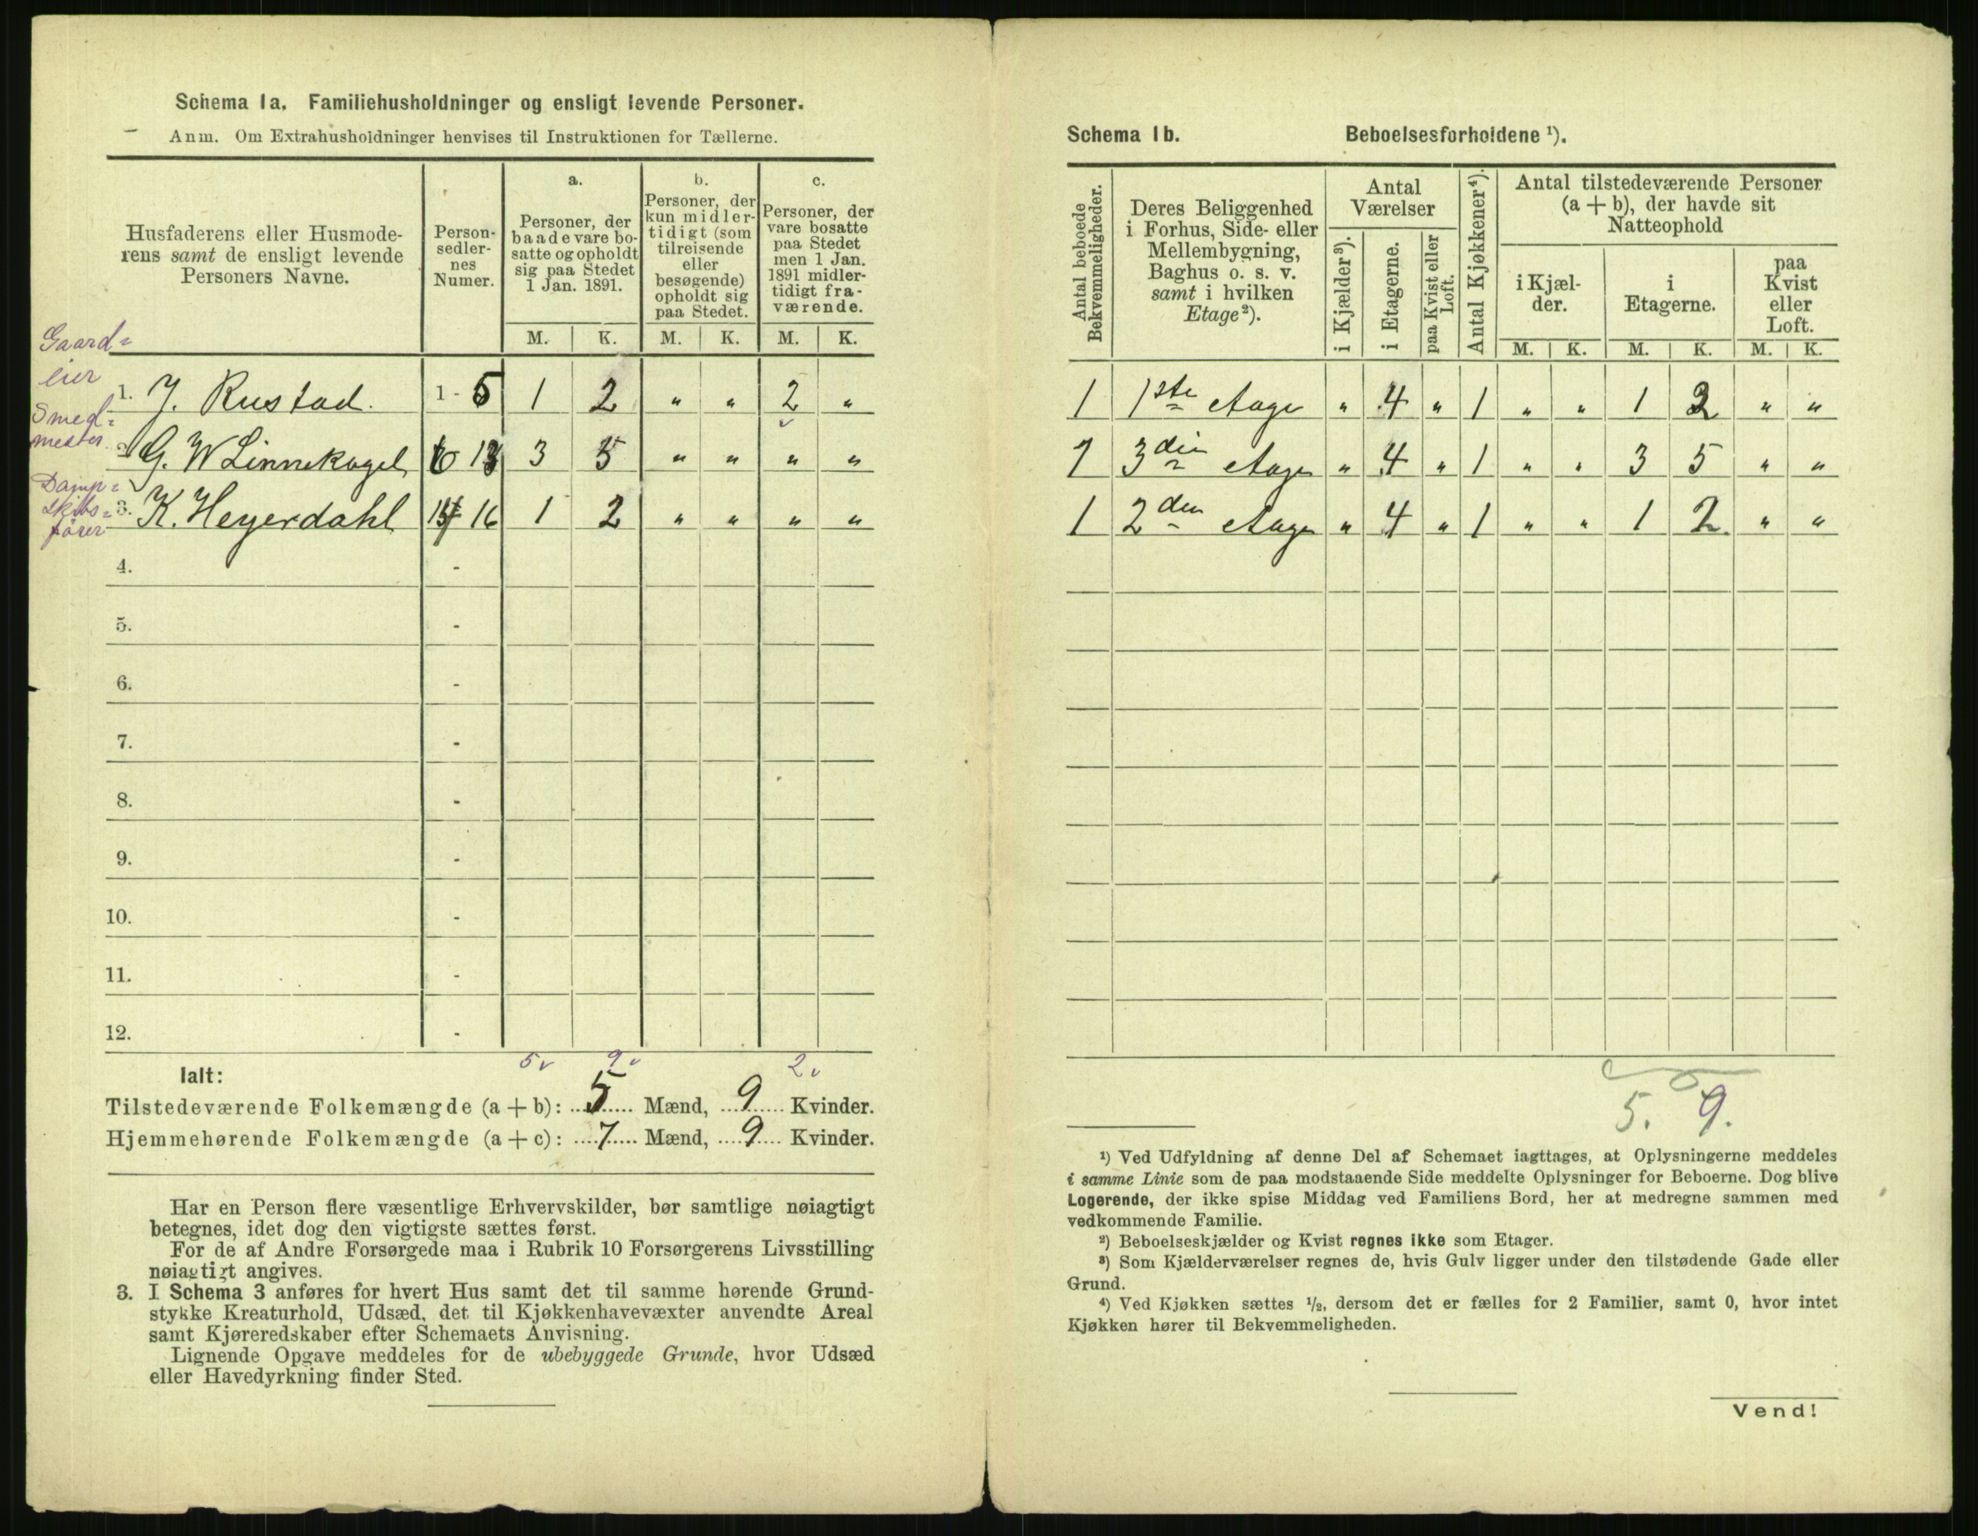 Schema 1a. Familiehusholdninger og ensligt levende Personer.
Anm. Om Extrahusholdninger henvises til Instruktionen for Tællerne.
Husfaderens eller Husmode-
rens samt de ensligt levende
Personers Navne.
Person-
sedler-
nes
Numer.
a.
Personer, der
baade vare bo-
satte og opholdt
sig paa Stedet
1 Jan. 1891.
b.
Personer, der
kun midler-
tidigt (som
tilreisende
eller
besøgende)
opholdt sig
paa Stedet.
c.
Personer, der
vare bosatte
paa Stedet
men 1 Jan.
1891 midler-
tidigt fra-
værende.
M. K. M. K. M. K.
Gaard-
eier
1. J. Rustad. 1 - 5 1 2 " " 2 "
Smed-
mester
2. G. W Linnekogel 6 13 3 5 " " " "
Damp-
skibs-
fører
3. K. Heyerdahl 14 16 1 2 " " " "
4. -
5. -
6. -
7. -
8. -
9. -
10. -
11. -
12. -
5 v 9 v 2 v
Ialt:
Tilstedeværende Folkemængde (a + b): 5 Mænd, 9 Kvinder.
Hjemmehørende Folkemængde (a + c): 7 Mænd, 9 Kvinder.
Har en Person flere væsentlige Erhvervskilder, bør samtlige nøiagtigt
betegnes, idet dog den vigtigste sættes først.
For de af Andre Forsørgede maa i Rubrik 10 Forsørgerens Livsstilling
nøiagtigt angives.
3. I Schema 3 anføres for hvert Hus samt det til samme hørende Grund-
stykke Kreaturhold, Udsæd, det til Kjøkkenhavevæxter anvendte Areal
samt Kjøreredskaber efter Schemaets Anvisning.
Lignende Opgave meddeles for de ubebyggede Grunde, hvor Udsæd
eller Havedyrkning finder Sted.
Schema 1b. Beboelsesforholdene ¹).
Antal beboede
Bekvemmeligheder.
Deres Beliggenhed
i Forhus, Side- eller
Mellembygning,
Baghus o. s. v.
samt i hvilken
Etage²).
Antal
Værelser
i Kjælder³).
i Etagerne.
paa Kvist eller
Loft.
Antal Kjøkkener⁴).
Antal tilstedeværende Personer
(a + b), der havde sit
Natteophold
i Kjæl-
der.
i
Etagerne.
paa
Kvist
eller
Loft.
M. K. M. K. M. K.
1 1ste Etage " 4 " 1 " " 1 2 " "
1 3die Etage " 4 " 1 " " 3 5 " "
1 2den Etage " 4 " 1 " " 1 2 " "
5. 9.
¹) Ved Udfyldning af denne Del af Schemaet iagttages, at Oplysningerne meddeles
i samme Linie som de paa modstaaende Side meddelte Oplysninger for Beboerne. Dog blive
Logerende, der ikke spise Middag ved Familiens Bord, her at medregne sammen med
vedkommende Familie.
²) Beboelseskjælder og Kvist regnes ikke som Etager.
³) Som Kjælderværelser regnes de, hvis Gulv ligger under den tilstødende Gade eller
Grund.
⁴) Ved Kjøkken sættes ½, dersom det er fælles for 2 Familier, samt 0, hvor intet
Kjøkken hører til Bekvemmeligheden.
Vend!